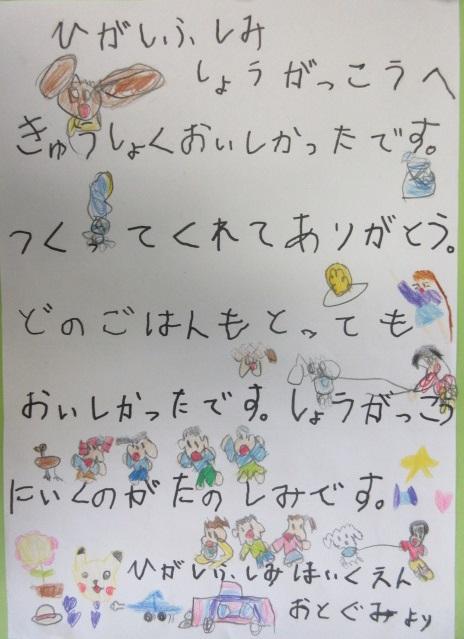 ひがしふしみ
しょうがっこうへ
きゅうしょくおいしかったです。
つくってくれてありがとう。
どのごはんもとっても
おいしかったです。しょうがっこう
にいくのがたのしみです。
ひがしふしみほいくえん
おとぐみより